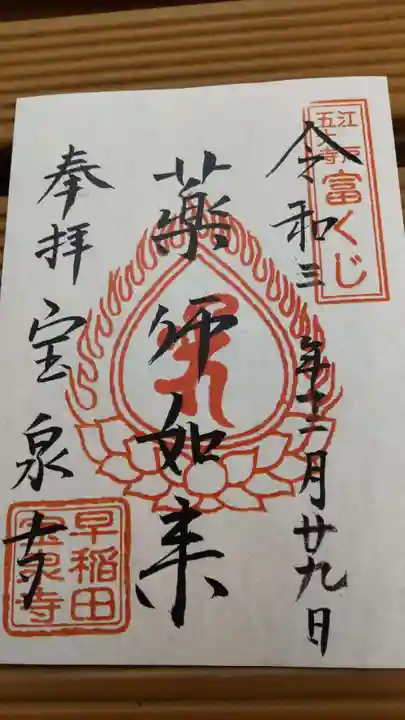 江戸
五大寺
富くじ
令和三年十二月廿九日
薬師如来
奉拝
宝泉寺
早稲田
宝泉寺